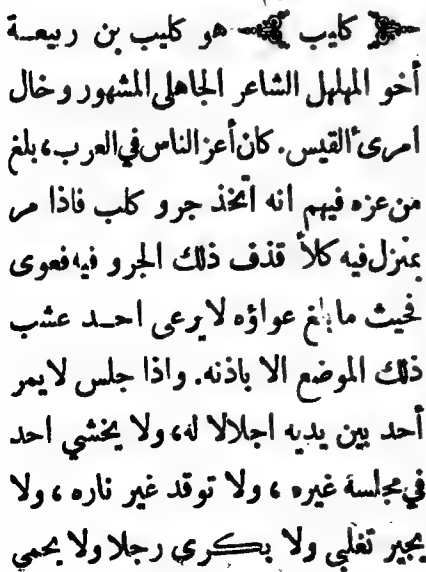 كليب هو كليب بن ربيعة
أخو المهلهل الشاعر الجاهلى المشهور وخال
امرىء القيس. كان أعز الناس في العرب، بلغ
من عزه فيهم انه اتخذ جرو كلب فاذا مر
بمنزل فيه كلأ قذف ذلك الجرو فيه فعوى
فحيث ما بلغ عواؤه لا يرعى احد عشب
ذلك الموضع الا باذنه. واذا جلس لا يمر
أحد بين يديه اجلالا له، ولا يخشي احد
في مجلسة غيره ، ولا توقد غير ناره ، ولا
يجير تغلبي ولا بكرى رجلا ولا يحمي